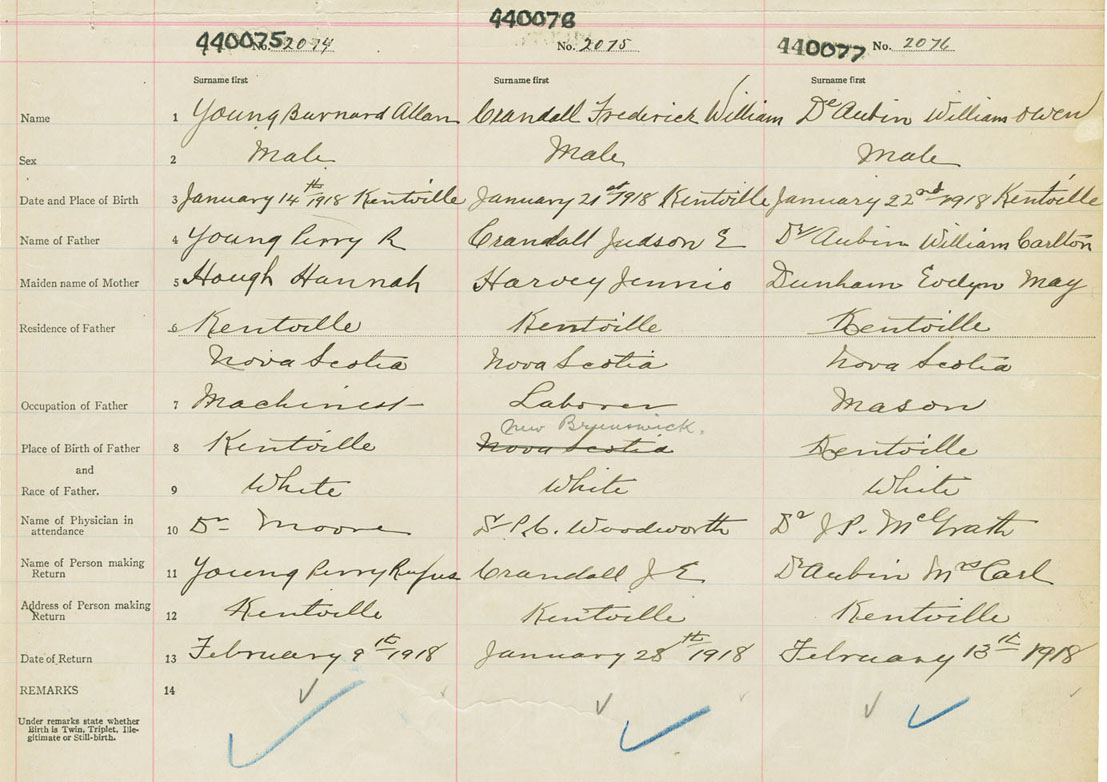 440075 No. 2074
440076
No. 2075
440077 No. 2076
Surname first Surname first Surname first
Name 1 Young Burnard Allan Crandall Frederick William DeAubin William Owen
Sex 2 Male Male Male
Date and Place of Birth 3 January 14th 1918 Kentville January 21st 1918 Kentville January 22nd 1918 Kentville
Name of Father 4 Young Perry R Crandall Judson E DeAubin William Carlton
Maiden name of Mother 5 Hough Hannah Harvey Jennie Dunham Evelyn May
Residence of Father 6 Kentville Kentville Kentville
Nova Scotia Nova Scotia Nova Scotia
Occupation of Father 7 Machinest Laborer Mason
New Brunswick.
Place of Birth of Father 8 Kentville Nova Scotia Kentville
and
Race of Father. 9 White White White
Name of Physician in
attendance 10 Dr Moore Dr P.C. Woodworth Dr J P. McGrath
Name of Person making
Return 11 Young Perry Rufus Crandall J E DeAubin Mrs Carl
Address of Person making
Return 12 Kentville Kentville Kentville
Date of Return 13 February 9th 1918 January 28th 1918 February 13th 1918
REMARKS 14
Under remarks state whether
Birth is Twin, Triplet, Ille-
gitimate or Still-birth.